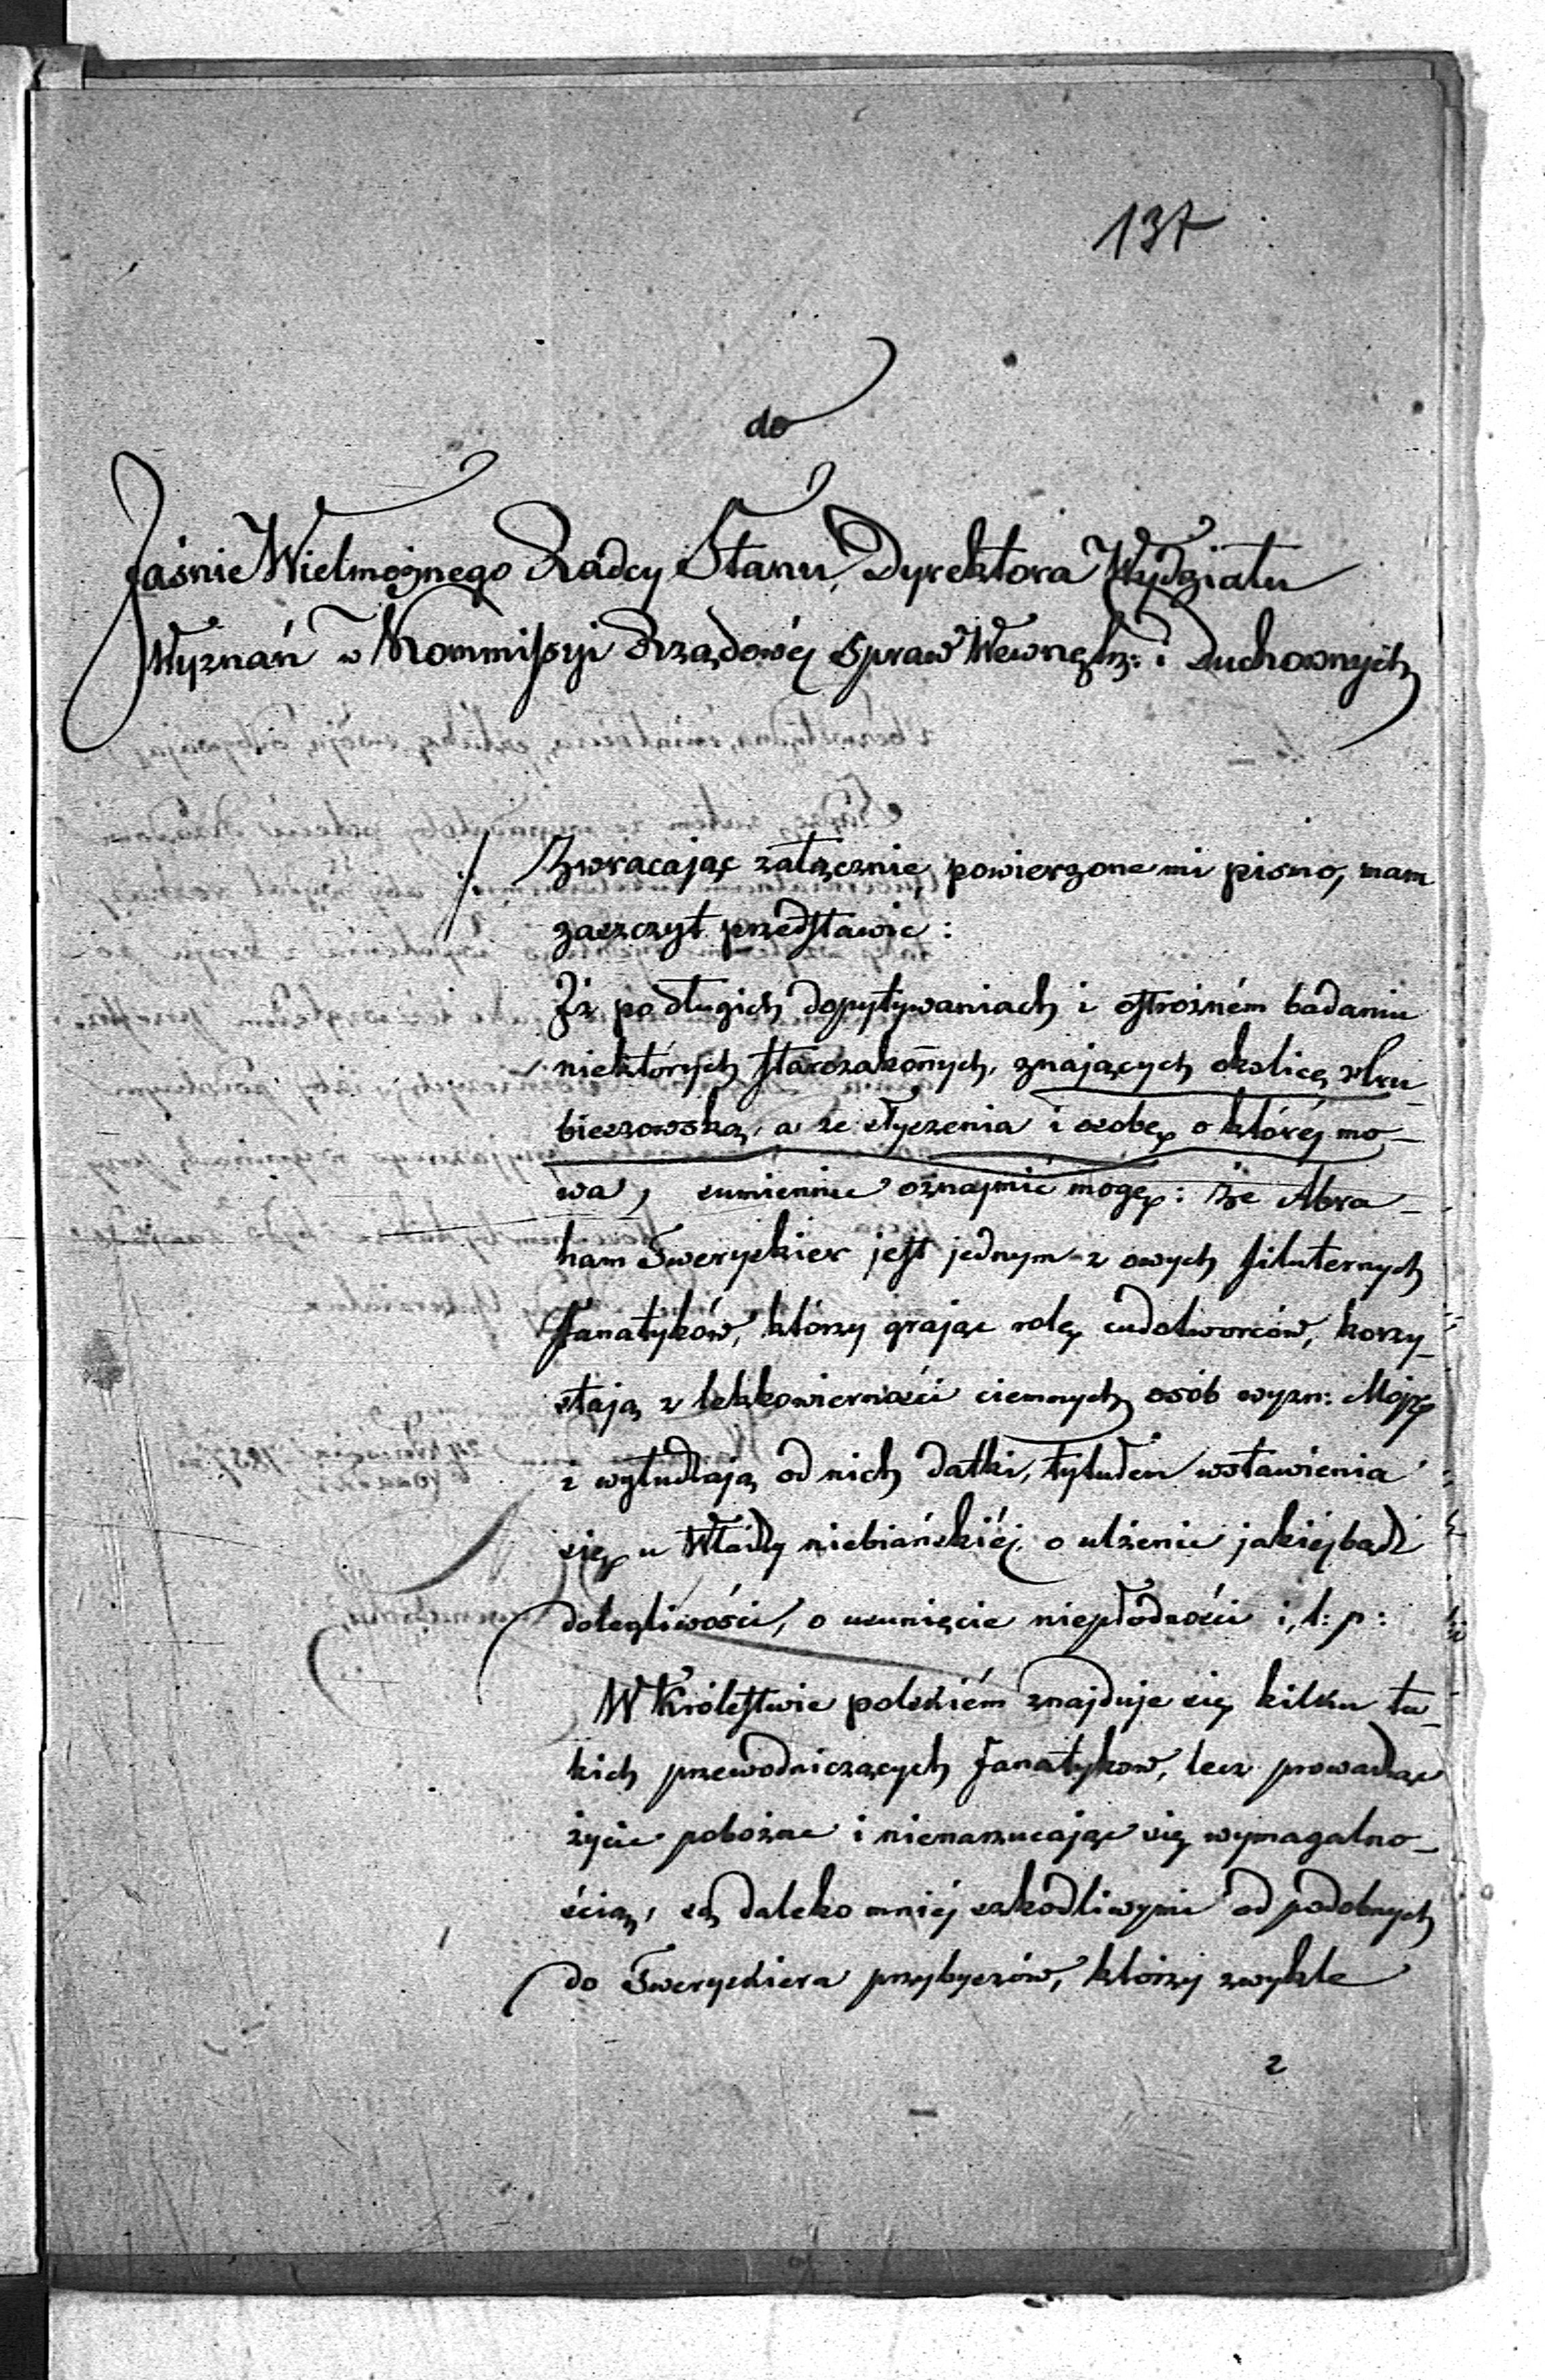 137
do
Jaśnie Wielmożnego Radcy Stanu, Dyrektora Wydziału
Wyznań w Kommissyi Rządowéj Spraw Wewnętrz: i Duchownych
Zwracając załącznie powierzone mi pismo, mam
zaszczyt przedstawic:
Iż po długich dopytywaniach i ostrożném badaniu
niektórych starozakonnych, znających okolicę Hru-
bieszowską, a ze słyszenia i osobę, o któréj mo-
wa, sumiennie oznajmić mogę: że Abra-
ham Sweryskier jest jednym z owych filuternych
Fanatyków, którzy grając rolę cudotworców, korzy-
stają z lekkowierności ciemnych osób wyzn: Mojż
i wyłudzają od nich datki, tytułem wstawienia
się u Władzy niebiańskiéj o ulżenie jakiejbądź
dolegliwości, o usunięcie niepłodności i, t: p:
W Królestwie polskiém znajduje się kilku ta-
kich przewodniczących fanatykow, lecz prowadząc
życie pobożne i nienarzucając się wymagalno-
ścią, są daleko mniéj szkodliwymi od podobnych
do Sweryskiera przybyszów, którzy zwykle
z